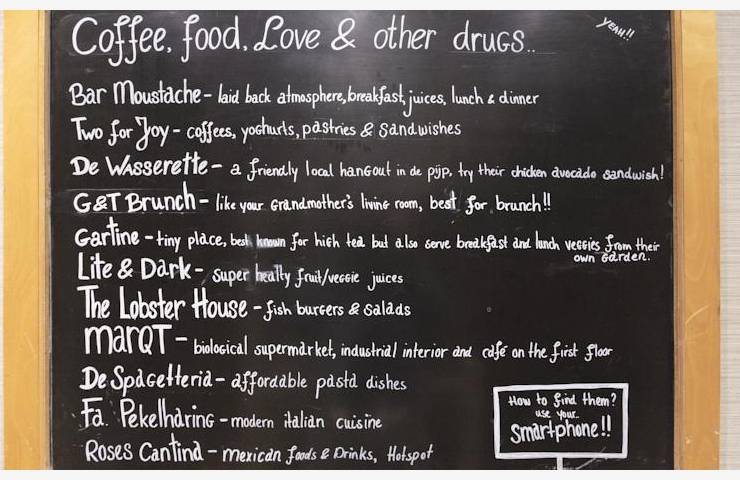 Coffee, food, Love & other drugs..
YEAH!!
Bar Moustache - laid back atmosphere, breakfast, juices, lunch & dinner
Two for Joy - coffees, yoghurts, pastries & sandwishes
De Wasserette - a friendly local hangout in de pijp, try their chicken avocado sandwish!
G&T Brunch - like your grandmother's living room, best for brunch!!
Gartine - tiny place, best known for high tea but also serve breakfast and lunch veggies from their
own garden.
Lite & Dark - super healty fruit/veggie juices
The Lobster House - fish burgers & salads
marQT - biological supermarket, industrial interior and café on the first floor
De Spagetteria - affordable pasta dishes
Fa. Pekelharing - modern italian cuisine
Roses Cantina - mexican foods & Drinks, Hotspot
How to find them?
use your..
Smartphone!!